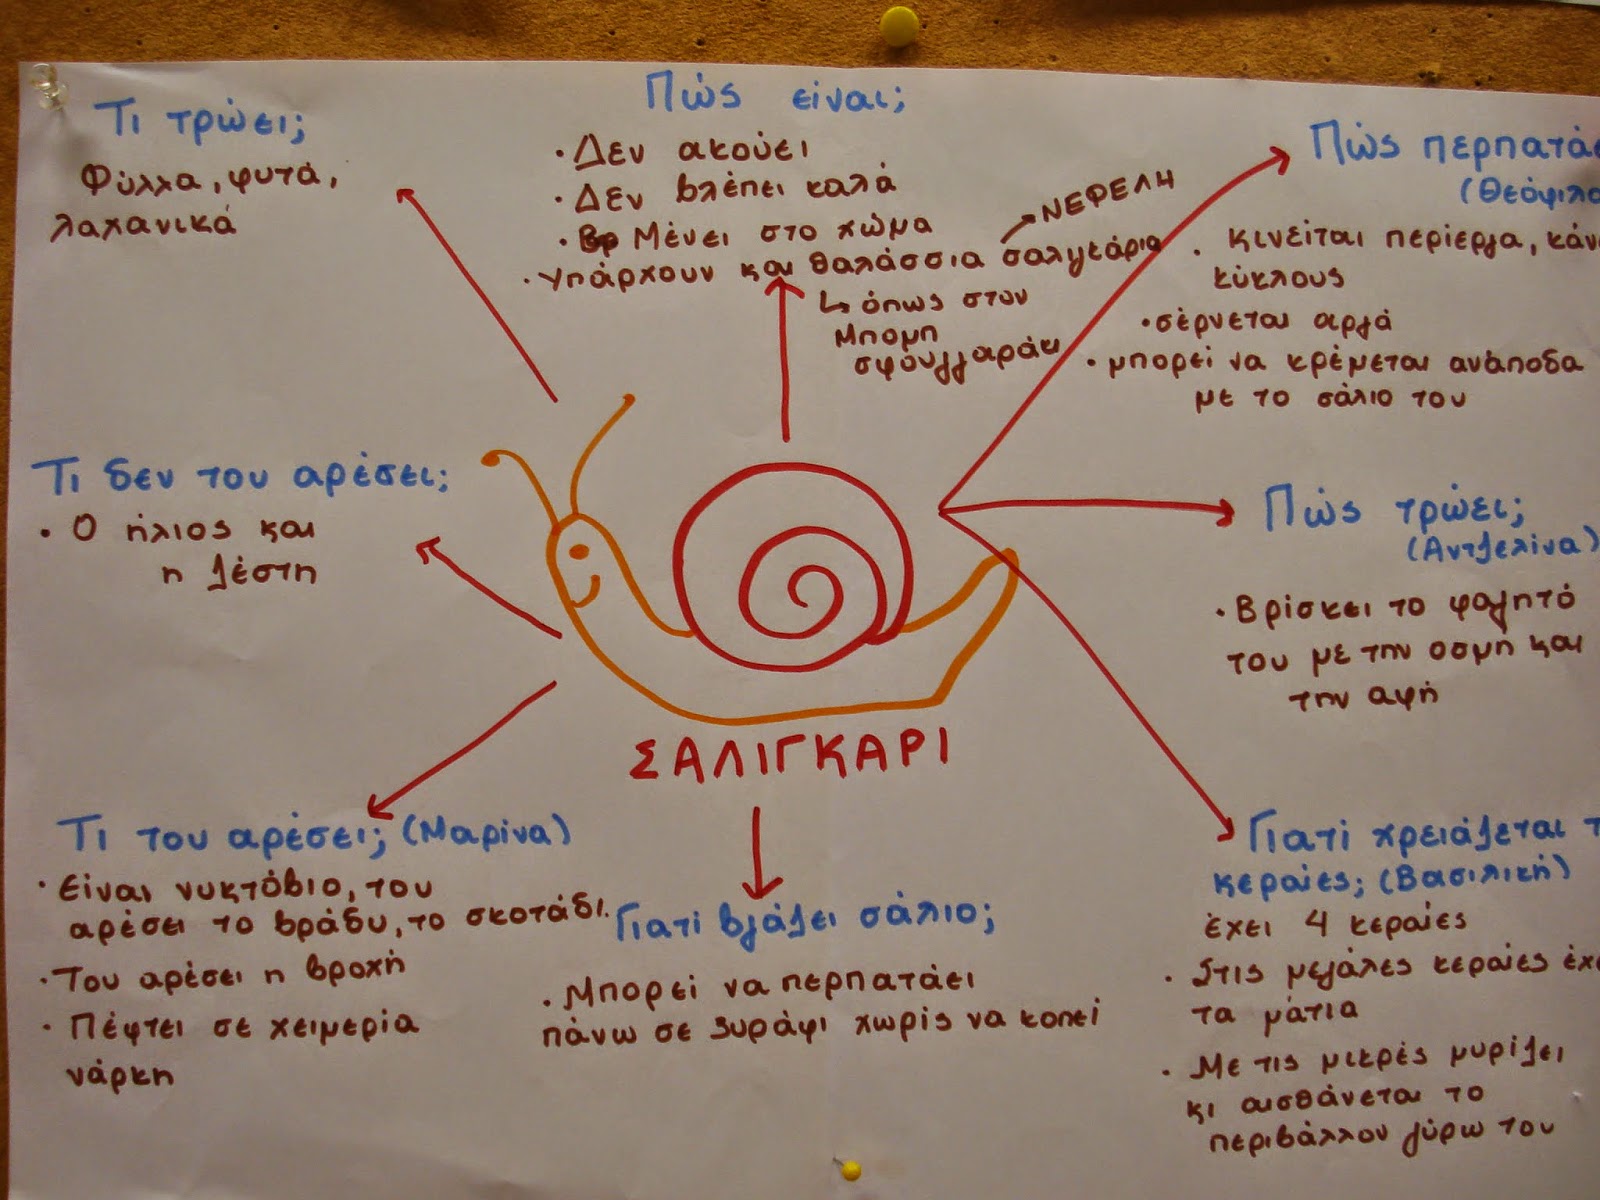 Τι τρώει;
Φύλλα, φυτά,
λαχανικά
Πώς είναι;
• Δεν ακούει
• Δεν βλέπει καλά
• Μένει στο χώμα
• Υπάρχουν και θαλάσσια σαλιγκάρια
ΝΕΦΕΛΗ
όπως στον
Μπομπ
σφουγγαράκι
Πώς περπατάε
(Θεόφιλο
• κινείται περίεργα, κάν
κύκλους
• σέρνεται αργά
• μπορεί να κρέμεται ανάποδα
με το σάλιο του
Τι δεν του αρέσει;
• Ο ήλιος και
η ζέστη
Πώς τρώει;
(Αντζελίνα)
• Βρίσκει το φαγητό
του με την οσμη και
την αφή
ΣΑΛΙΓΚΑΡΙ
Τι του αρέσει; (Μαρίνα)
• Είναι νυκτόβιο, του
αρέσει το βράδυ, το σκοτάδι.
• Του αρέσει η βροχή
• Πέφτει σε χειμερία
νάρκη
Γιατί βγάζει σάλιο;
• Μπορεί να περπατάει
πάνω σε ξυράφι χωρίς να κοπεί
Γιατί χρειάζεται τ
κεραίες; (Βασιλική)
έχει 4 κεραίες
• Στις μεγάλες κεραίες έχε
τα μάτια
• Με τις μικρές μυρίζει
κι αισθάνεται το
περιβάλλον γύρω του